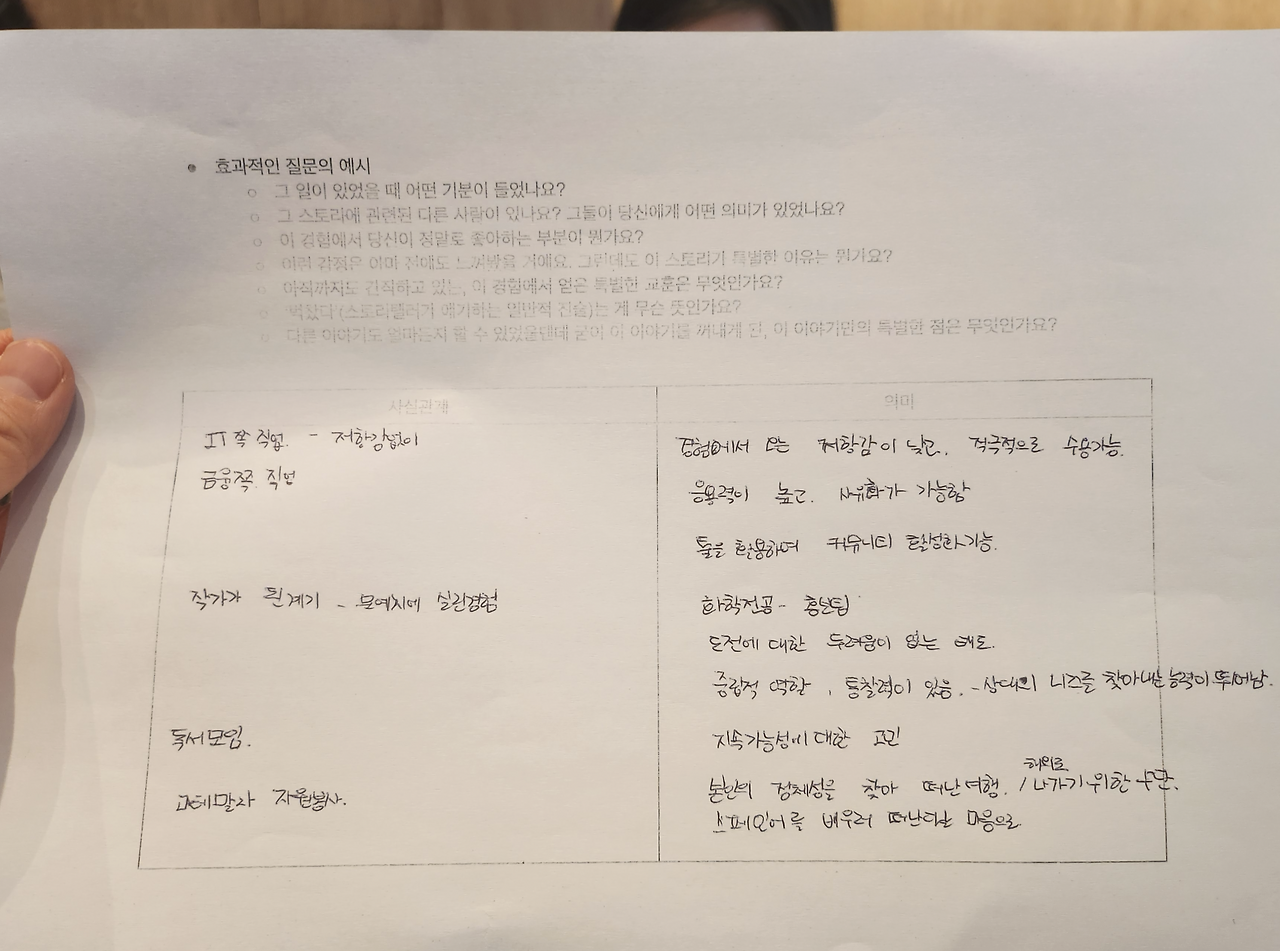 효과적인 질문의 예시
그 일이 있었을 때 어떤 기분이 들었나요?
그 스토리에 관련된 다른 사람이 있나요? 그들이 당신에게 어떤 의미가 있었나요?
이 경험에서 당신이 정말로 좋아하는 부분이 뭔가요?
이런 감정은 아마 전에도 느껴봤을 거예요. 그런데도 이 스토리가 특별한 이유는 뭔가요?
아직까지도 간직하고 있는, 이 경험에서 얻은 특별한 교훈은 무엇인가요?
'벅찼다'(스토리텔러가 얘기하는 일반적 진술)는 게 무슨 뜻인가요?
다른 이야기도 얼마든지 할 수 있었을텐데 굳이 이 이야기를 꺼내게 된, 이 이야기만의 특별한 점은 무엇인가요?
사실관계 의미
IT쪽 직업. - 저항감없이
경험에서 오는 저항감이 낮고, 적극적으로 수용가능.
금융쪽 직업
응용력이 높고. 사유화가 가능함
툴을 활용하여 커뮤니티 활성화가능.
작가가 된 계기 - 문예지에 실린경험
화학전공 - 홍보팀
도전에 대한 두려움이 없는 태도.
중립적 역할, 통찰력이 있음. - 상대의 니즈를 찾아내는 능력이 뛰어남.
독서모임.
지속가능성에 대한 고민
과테말라 자원봉사.
본인의 정체성을 찾아 떠난 여행. / 해외로 나가기 위한 수단.
스페인어를 배우러 떠난다는 마음으로